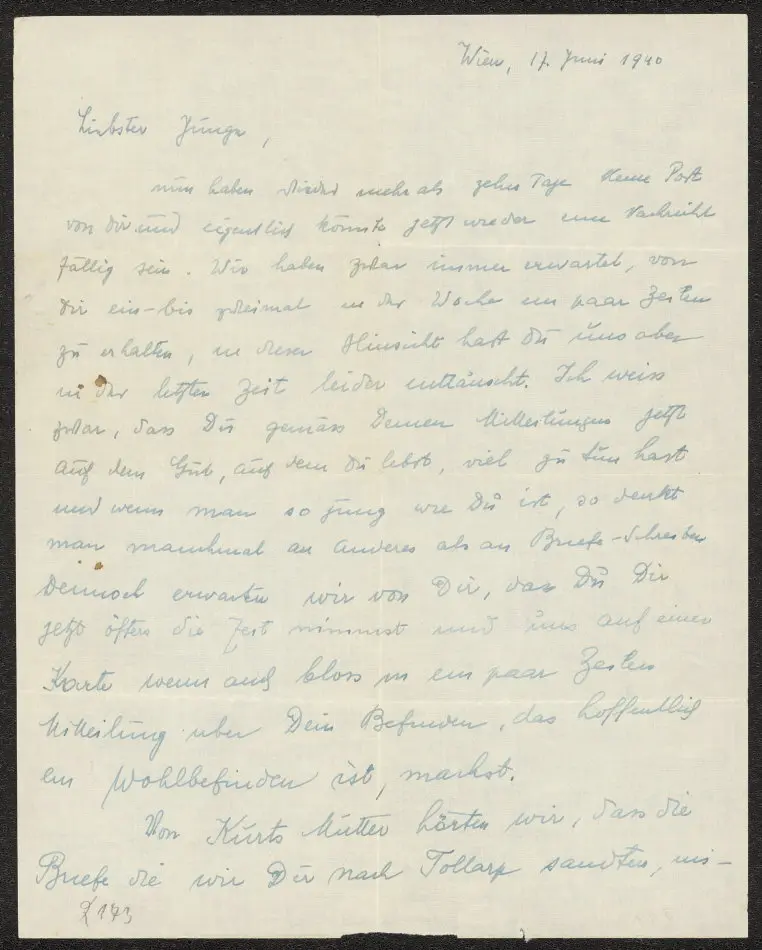 Wien, 17. Juni 1940
Liebster Junge,
nun haben wieder mehr als zehn Tage keine Post
von dir und eigentlich könnte jetzt wieder eine Nachricht
fällig sein. Wir haben zwar immer erwartet, von
Dir ein-bis zweimal in der Woche ein paar Zeilen
zu erhalten, in dieser Hinsicht hast Du uns aber
in der letzten Zeit leider enttäuscht. Ich weiss
zwar, dass Du gemäss Deinen Mitteilungen jetzt
auf dem Gut, auf dem Du lebst, viel zu tun hast
und wenn man so jung wie Du ist, so denkt
man manchmal an Anderes als an Briefe-Schreiben
Dennoch erwarten wir von Dir, dass Du Dir
jetzt öfters die Zeit nimmst und uns auf einer
Karte wenn auch bloss in ein paar Zeilen
Mitteilung über Dein Befinden, das hoffentlich
ein Wohlbefinden ist, machst.
Von Kurts Mutter hörten wir, dass die
Briefe die wir Dir nach Tollarp sandten, uns-
173